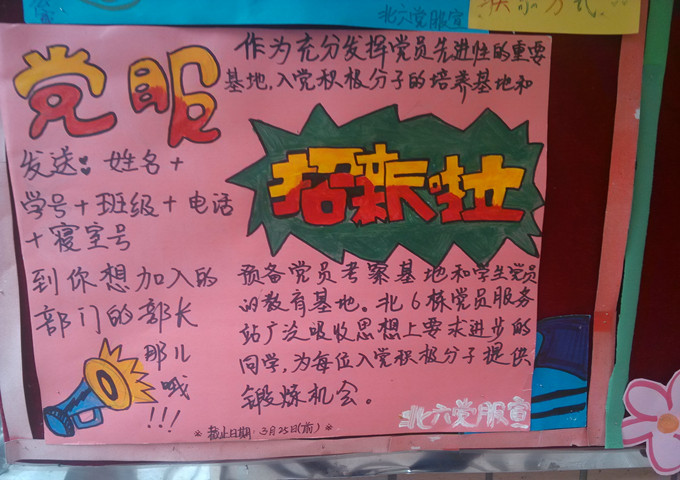 北六党服宣
联系方式
党服
作为充分发挥党员先进性的重要
基地,入党积极分子的培养基地和
招新啦
发送 姓名+
学号+班级+电话
+寝室号
到你想加入的
部门的部长
那儿
哦
!!!
预备党员考察基地和学生党员
的教育基地。北6栋党员服务
站广泛吸收思想上要求进步的
同学,为每位入党积极分子提供
锻炼机会。
北六党服宣
※ 截止日期:3月25日(前) ※